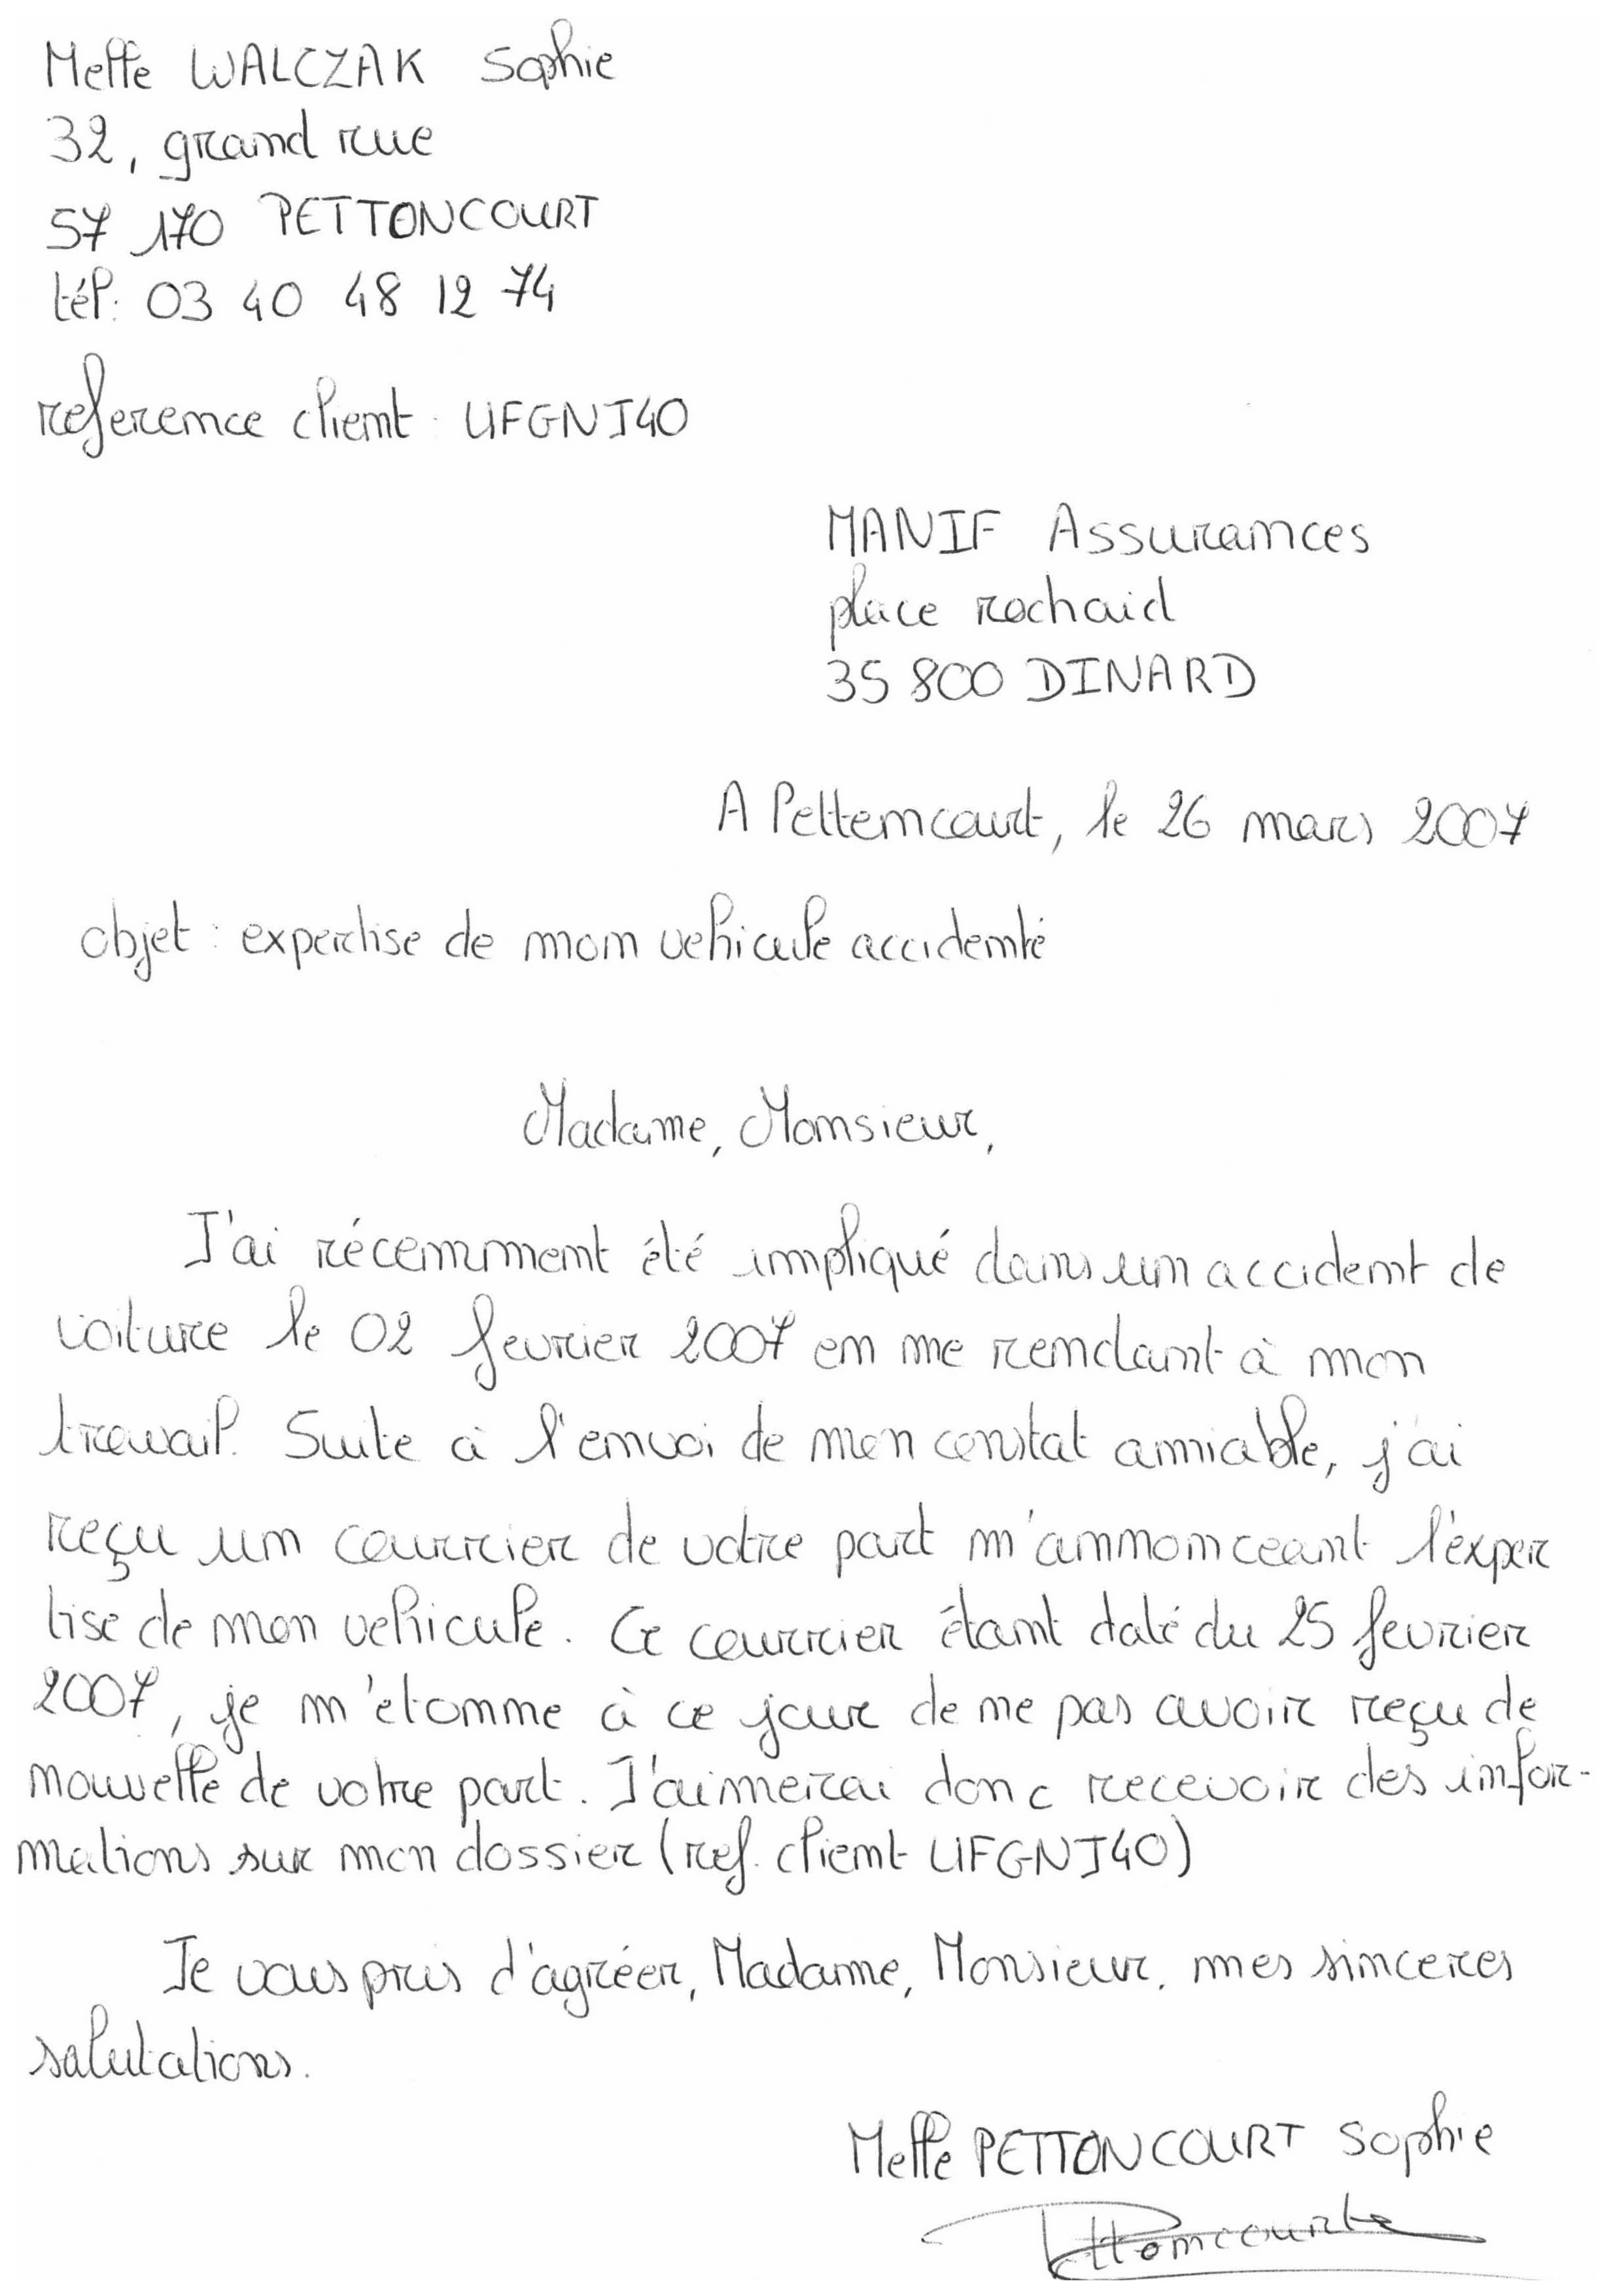 Melle WALCZAK Sophie
32, grand rue
57 170 PETTONCOURT
tél: 03 40 48 12 74
reference client : UFGNJ40
MANIF Assurances
place rochaid
35 800 DINARD
A Pettencourt, le 26 mars 2007
objet : expertise de mon vehicule accidenté
Madame, Monsieur,
J'ai récemment été impliqué dans un accident de
voiture le 02 fevrier 2007 en me rendant à mon
travail. Suite à l'envoi de mon constat amiable, j'ai
reçu un courrier de votre part m'annonceant l'exper
tise de mon vehicule. Ce courrier étant daté du 25 fevrier
2007, je m'etonne à ce jour de ne pas avoir reçu de
nouvelle de votre part. J'aimerai donc recevoir des infor-
mations sur mon dossier (ref. client UFGNJ40)
Je vous pris d'agréer, Madame, Monsieur, mes sinceres
salutations.
Melle PETTONCOURT Sophie